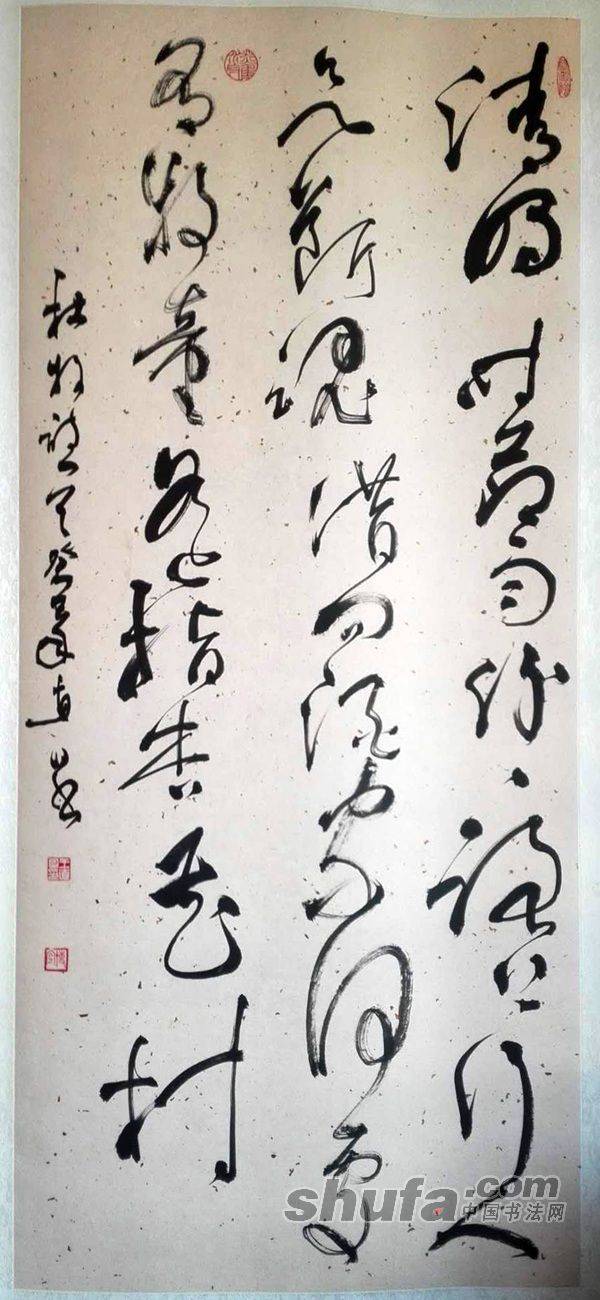 清明时节雨纷纷路上行人
欲断魂借问酒家何处
有牧童遥指杏花村
杜牧诗
shufa.com
中国书法网